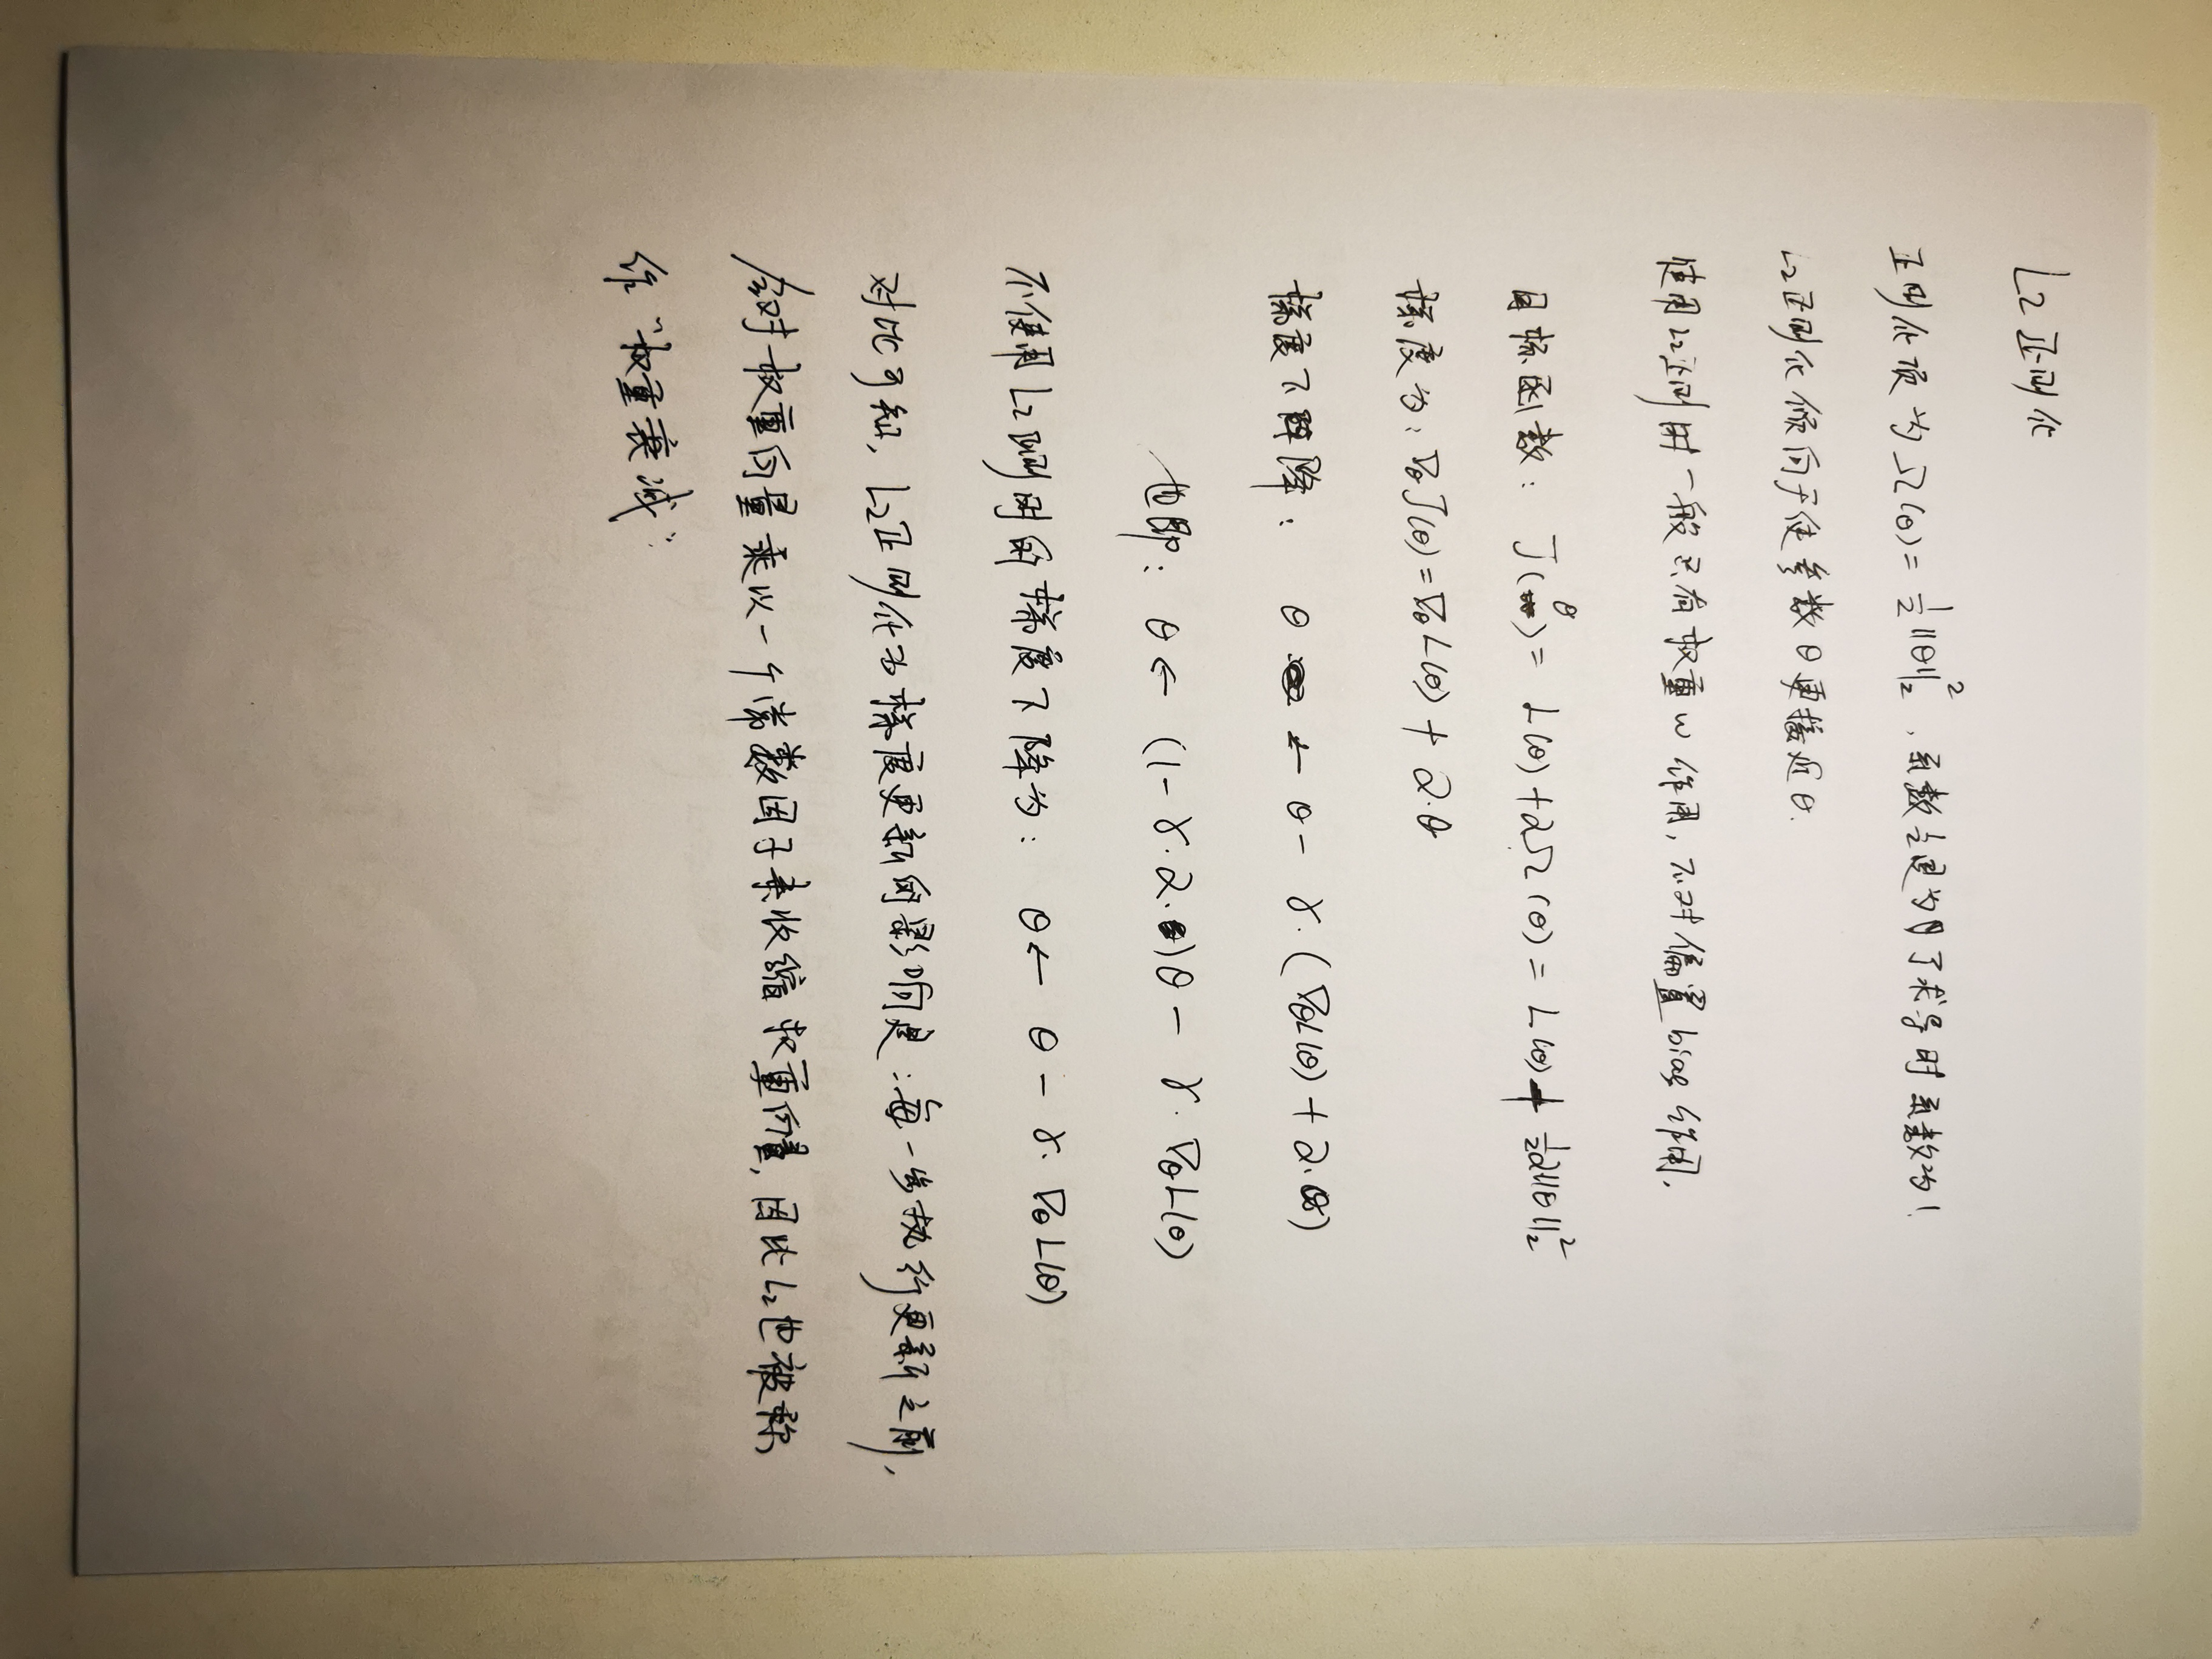 L2正则化
正则化项为 Ω(θ) = ½||θ||₂², 系数½是为了求导时系数为1
L2正则化倾向于使参数θ更接近0.
使用L2正则时一般只有权重w作用, 不对偏置bias作用.
目标函数: J(θ) = L(θ) + αΩ(θ) = L(θ) + ½α||θ||₂²
梯度为: ∇θJ(θ) = ∇θL(θ) + α·θ
梯度下降: θ ← θ - γ·(∇θL(θ) + α·θ)
也即: θ ← (1 - γ·α·)θ - γ·∇θL(θ)
不使用L2正则时的梯度下降为: θ ← θ - γ·∇θL(θ)
对比可知, L2正则化为梯度更新的影响是: 每一步执行更新之前,
会对权重向量乘以一个常数因子来收缩权重向量, 因此L2也被称
作“权重衰减”.